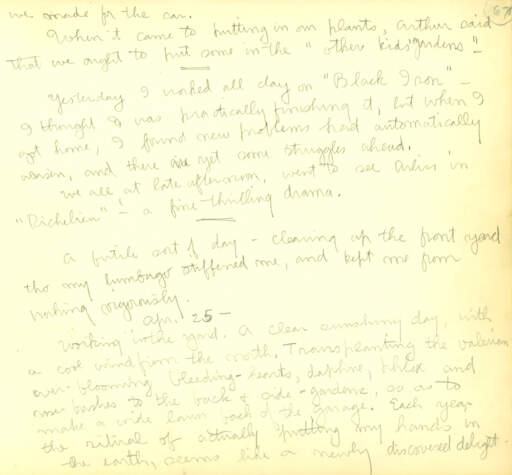 we made for the car.
When it came to putting in our plants, Arthur said
that we ought to put some in the "other kids' gardens"!
Yesterday I worked all day on "Black Iron" –
I thought I was practically finishing it, but when I
got home, I found new problems had automatically
arisen, and there are yet some struggles ahead.
We all at late afternoon, went to see Arliss in
"Richelieu" – a fine thrilling drama.
A futile sort of day – cleaning up the front yard
tho my lumbago stiffened me, and kept me from
working vigorously.
Apr. 25 –
Working in the yard. A clear sunshiny day, with
a cool wind from the north. Transplanting the valerian
over-blooming bleeding-hearts, daphne, phlox and
rose bushes to the back & side-gardens, so as to
make a wide lawn back of the garage. Each year
the ritual of actually putting my hands in
the earth, seems like a newly discovered delight.